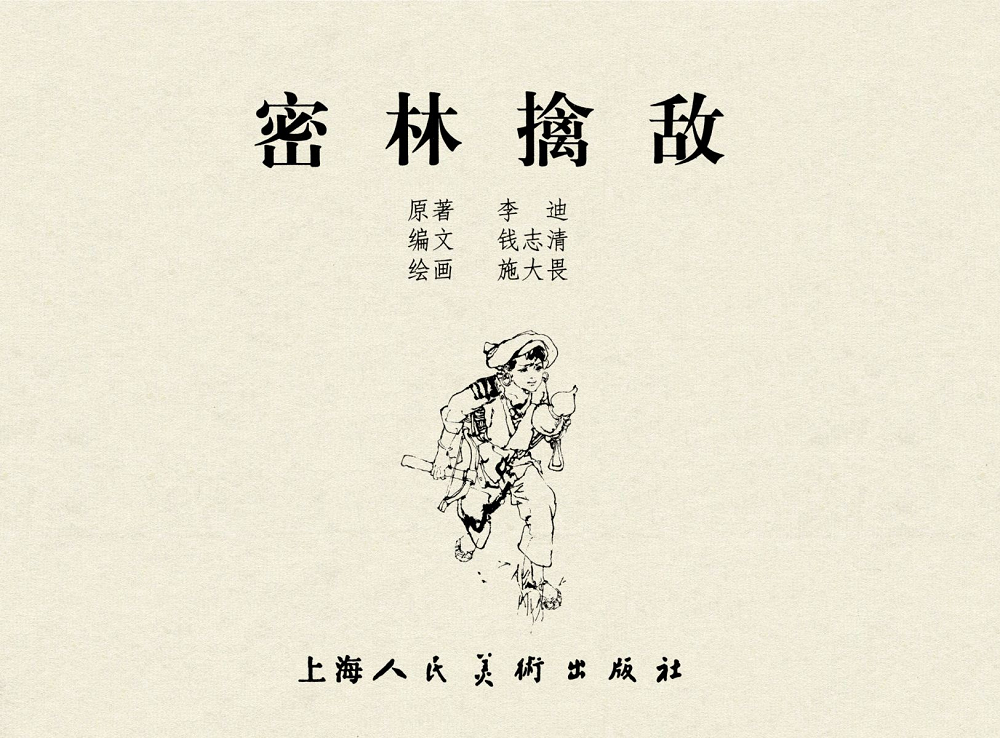 密林擒敌
原著 李迪
编文 钱志清
绘画 施大畏
上海人民美術出版社